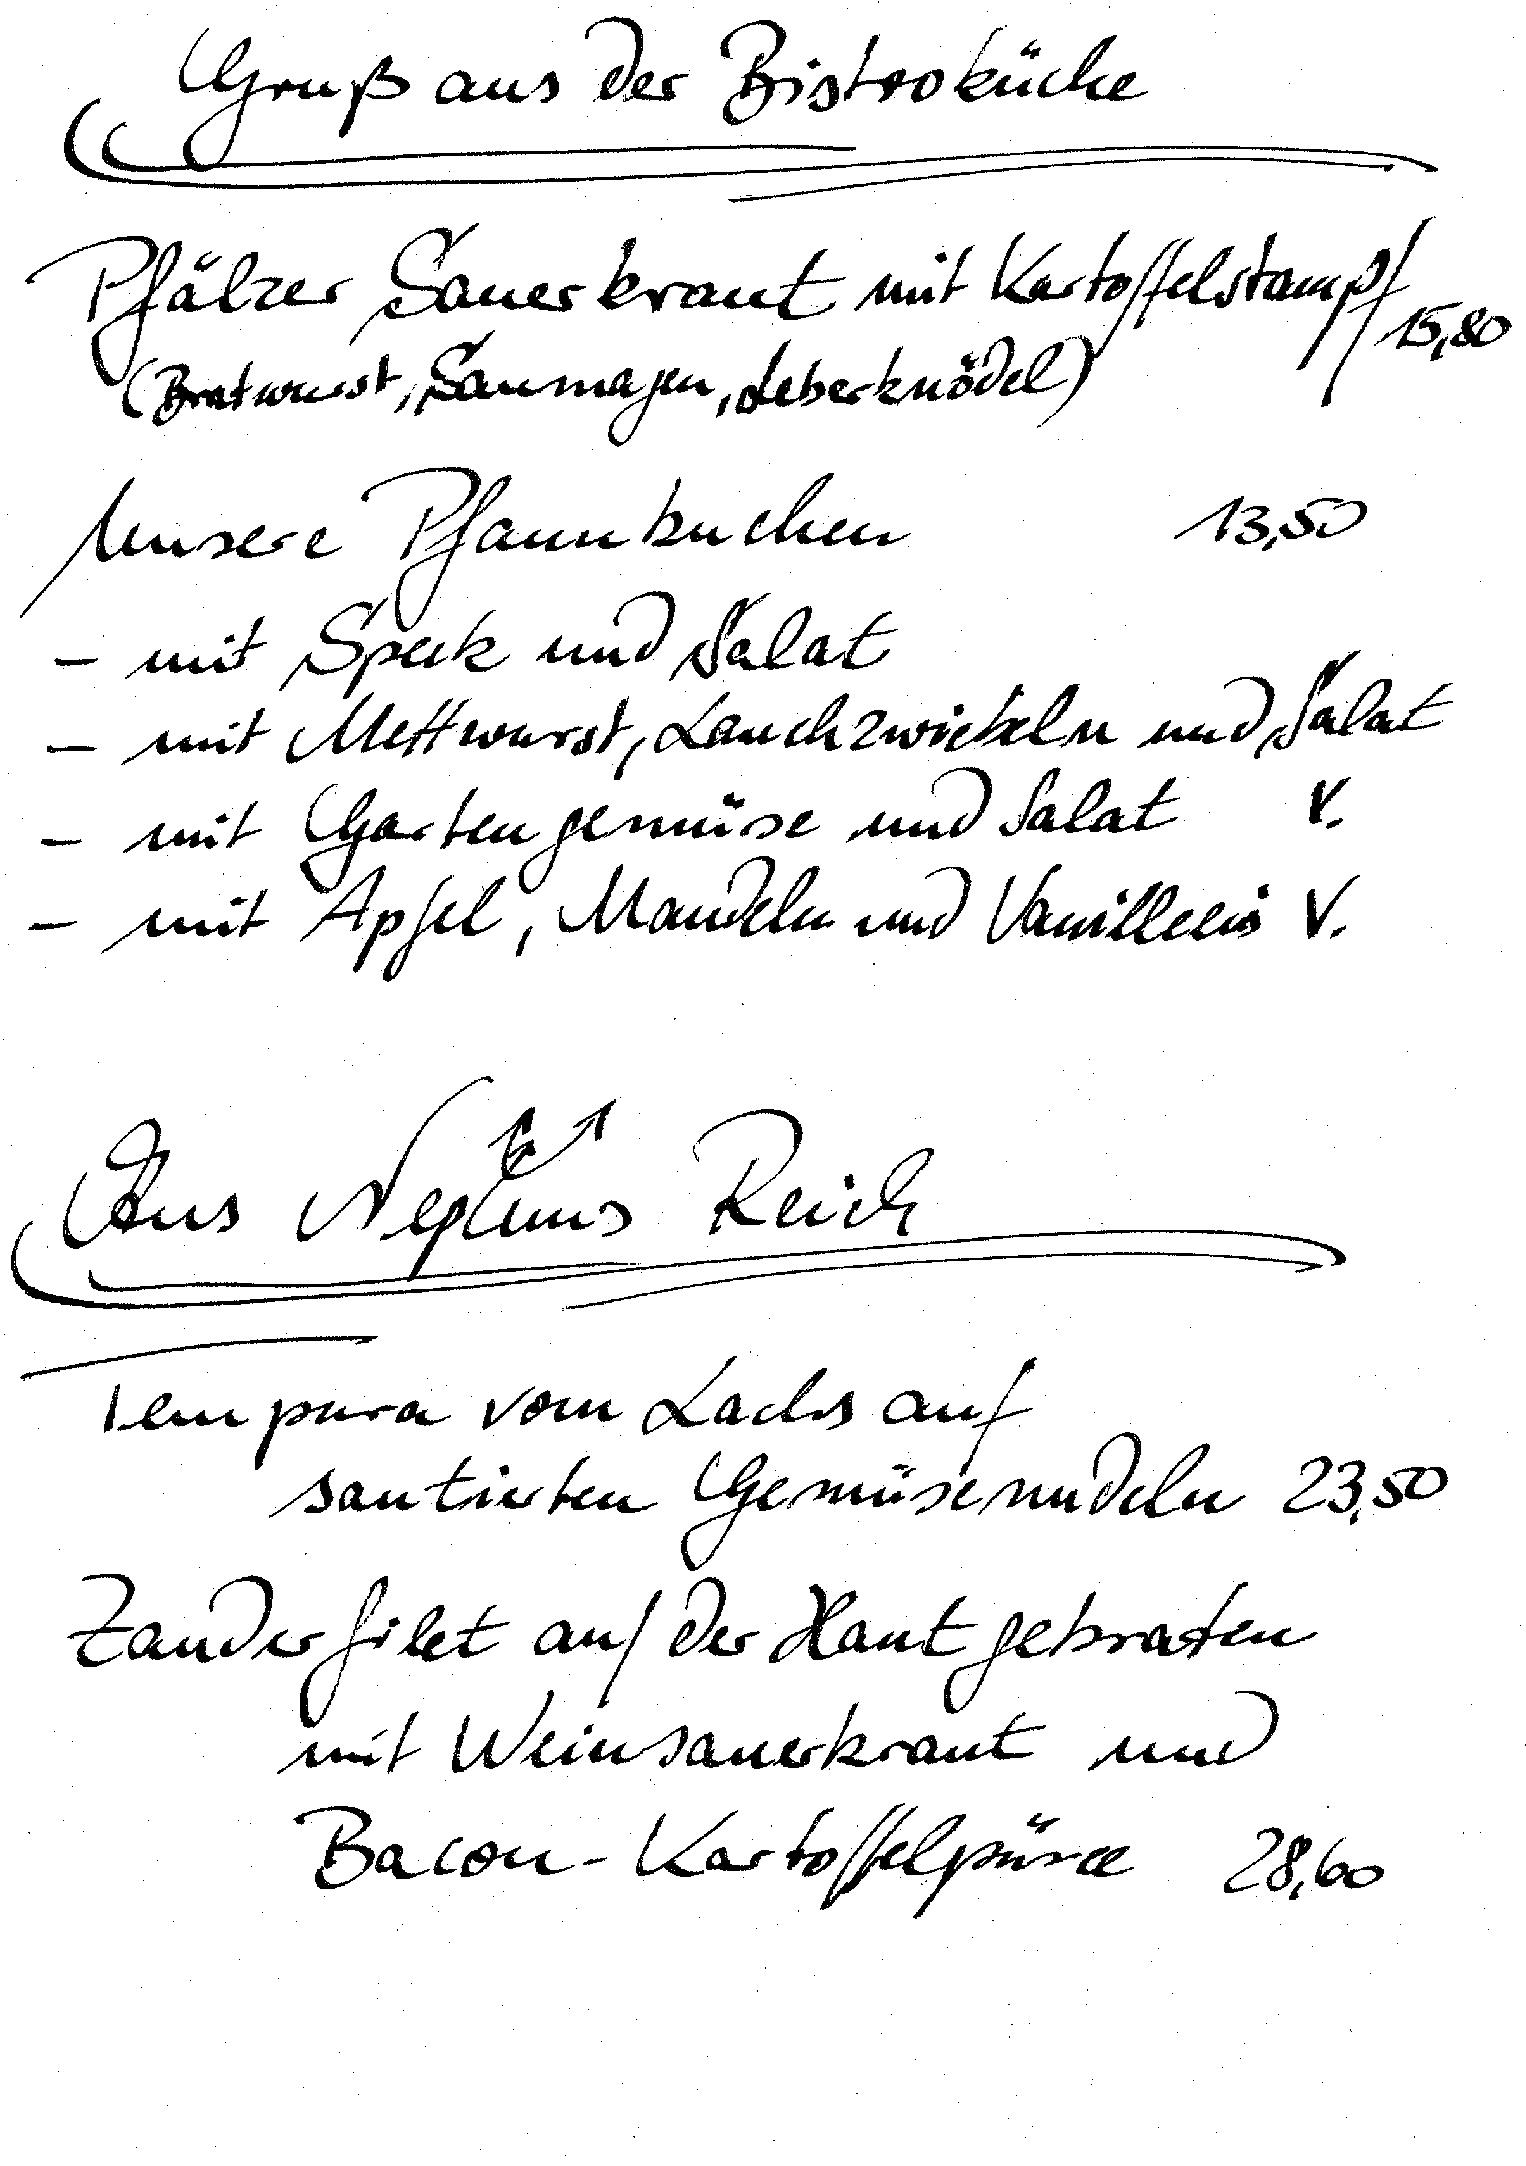 Gruß aus der Bistroküche
Pfälzer Sauerkraut mit Kartoffelstampf 15,80
(Bratwurst, Saumagen, Leberknödel)
Unsere Pfannkuchen 13,50
- mit Speck und Salat
- mit Mettwurst, Lauchzwiebeln und Salat
- mit Gartengemüse und Salat V.
- mit Apfel, Mandeln und Vanilleeis V.
Aus Neptuns Reich
Tempura vom Lachs auf
sautierten Gemüsenudeln 23,50
Zanderfilet auf der Haut gebraten
mit Weinsauerkraut und
Bacon-Kartoffelpüree 28,60